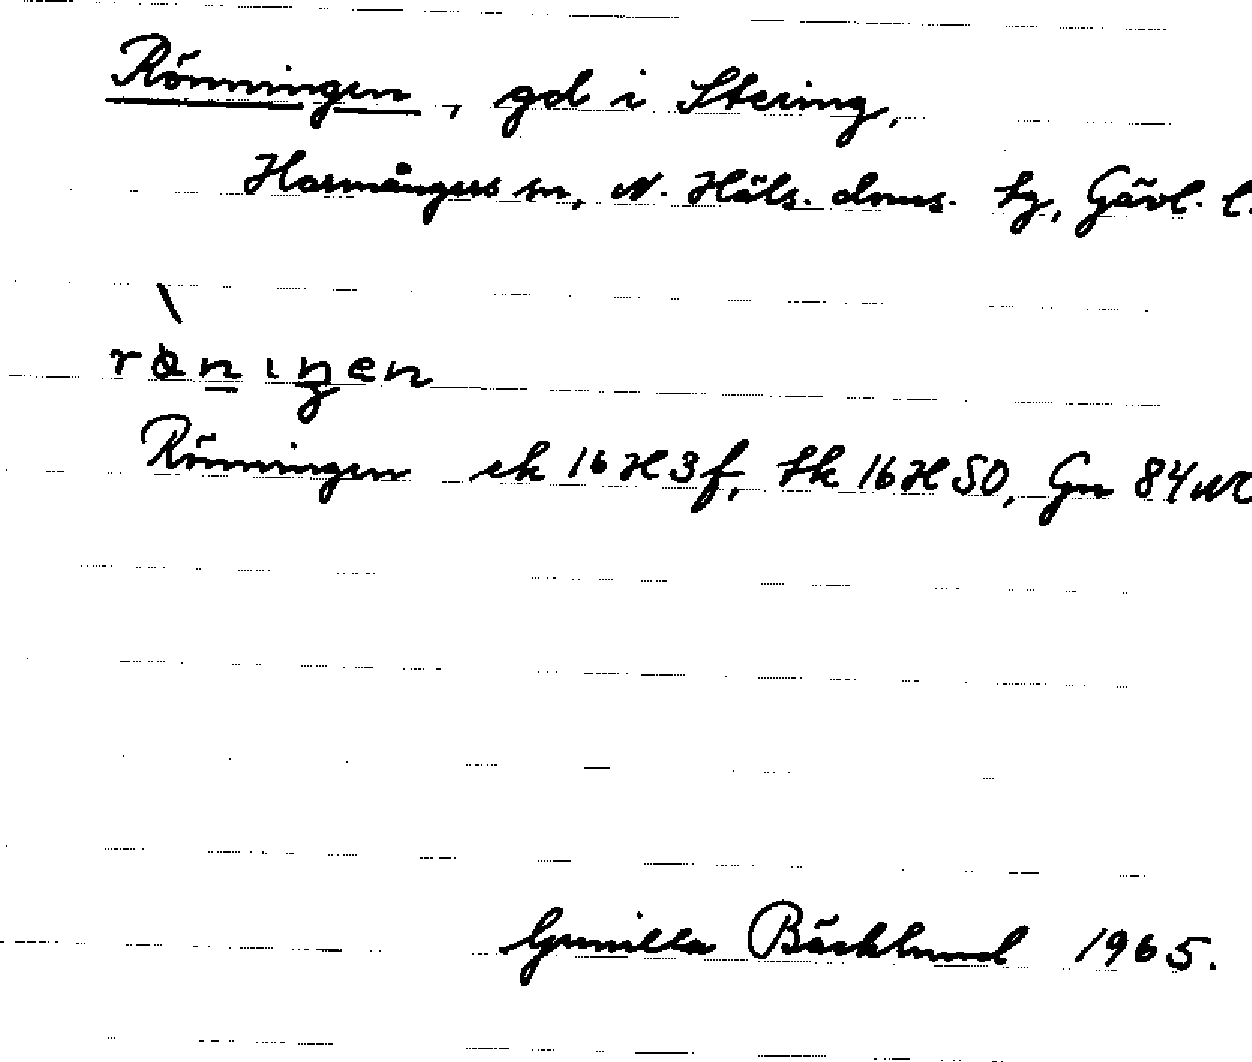 Rönningen, gd i Stering,
Harmångers sn, N. Häls. doms. tg, Gävl. l.
Rönningen ek 16H3f, tk 16H50, Gn 84
Gunilla Bäcklund 1965.